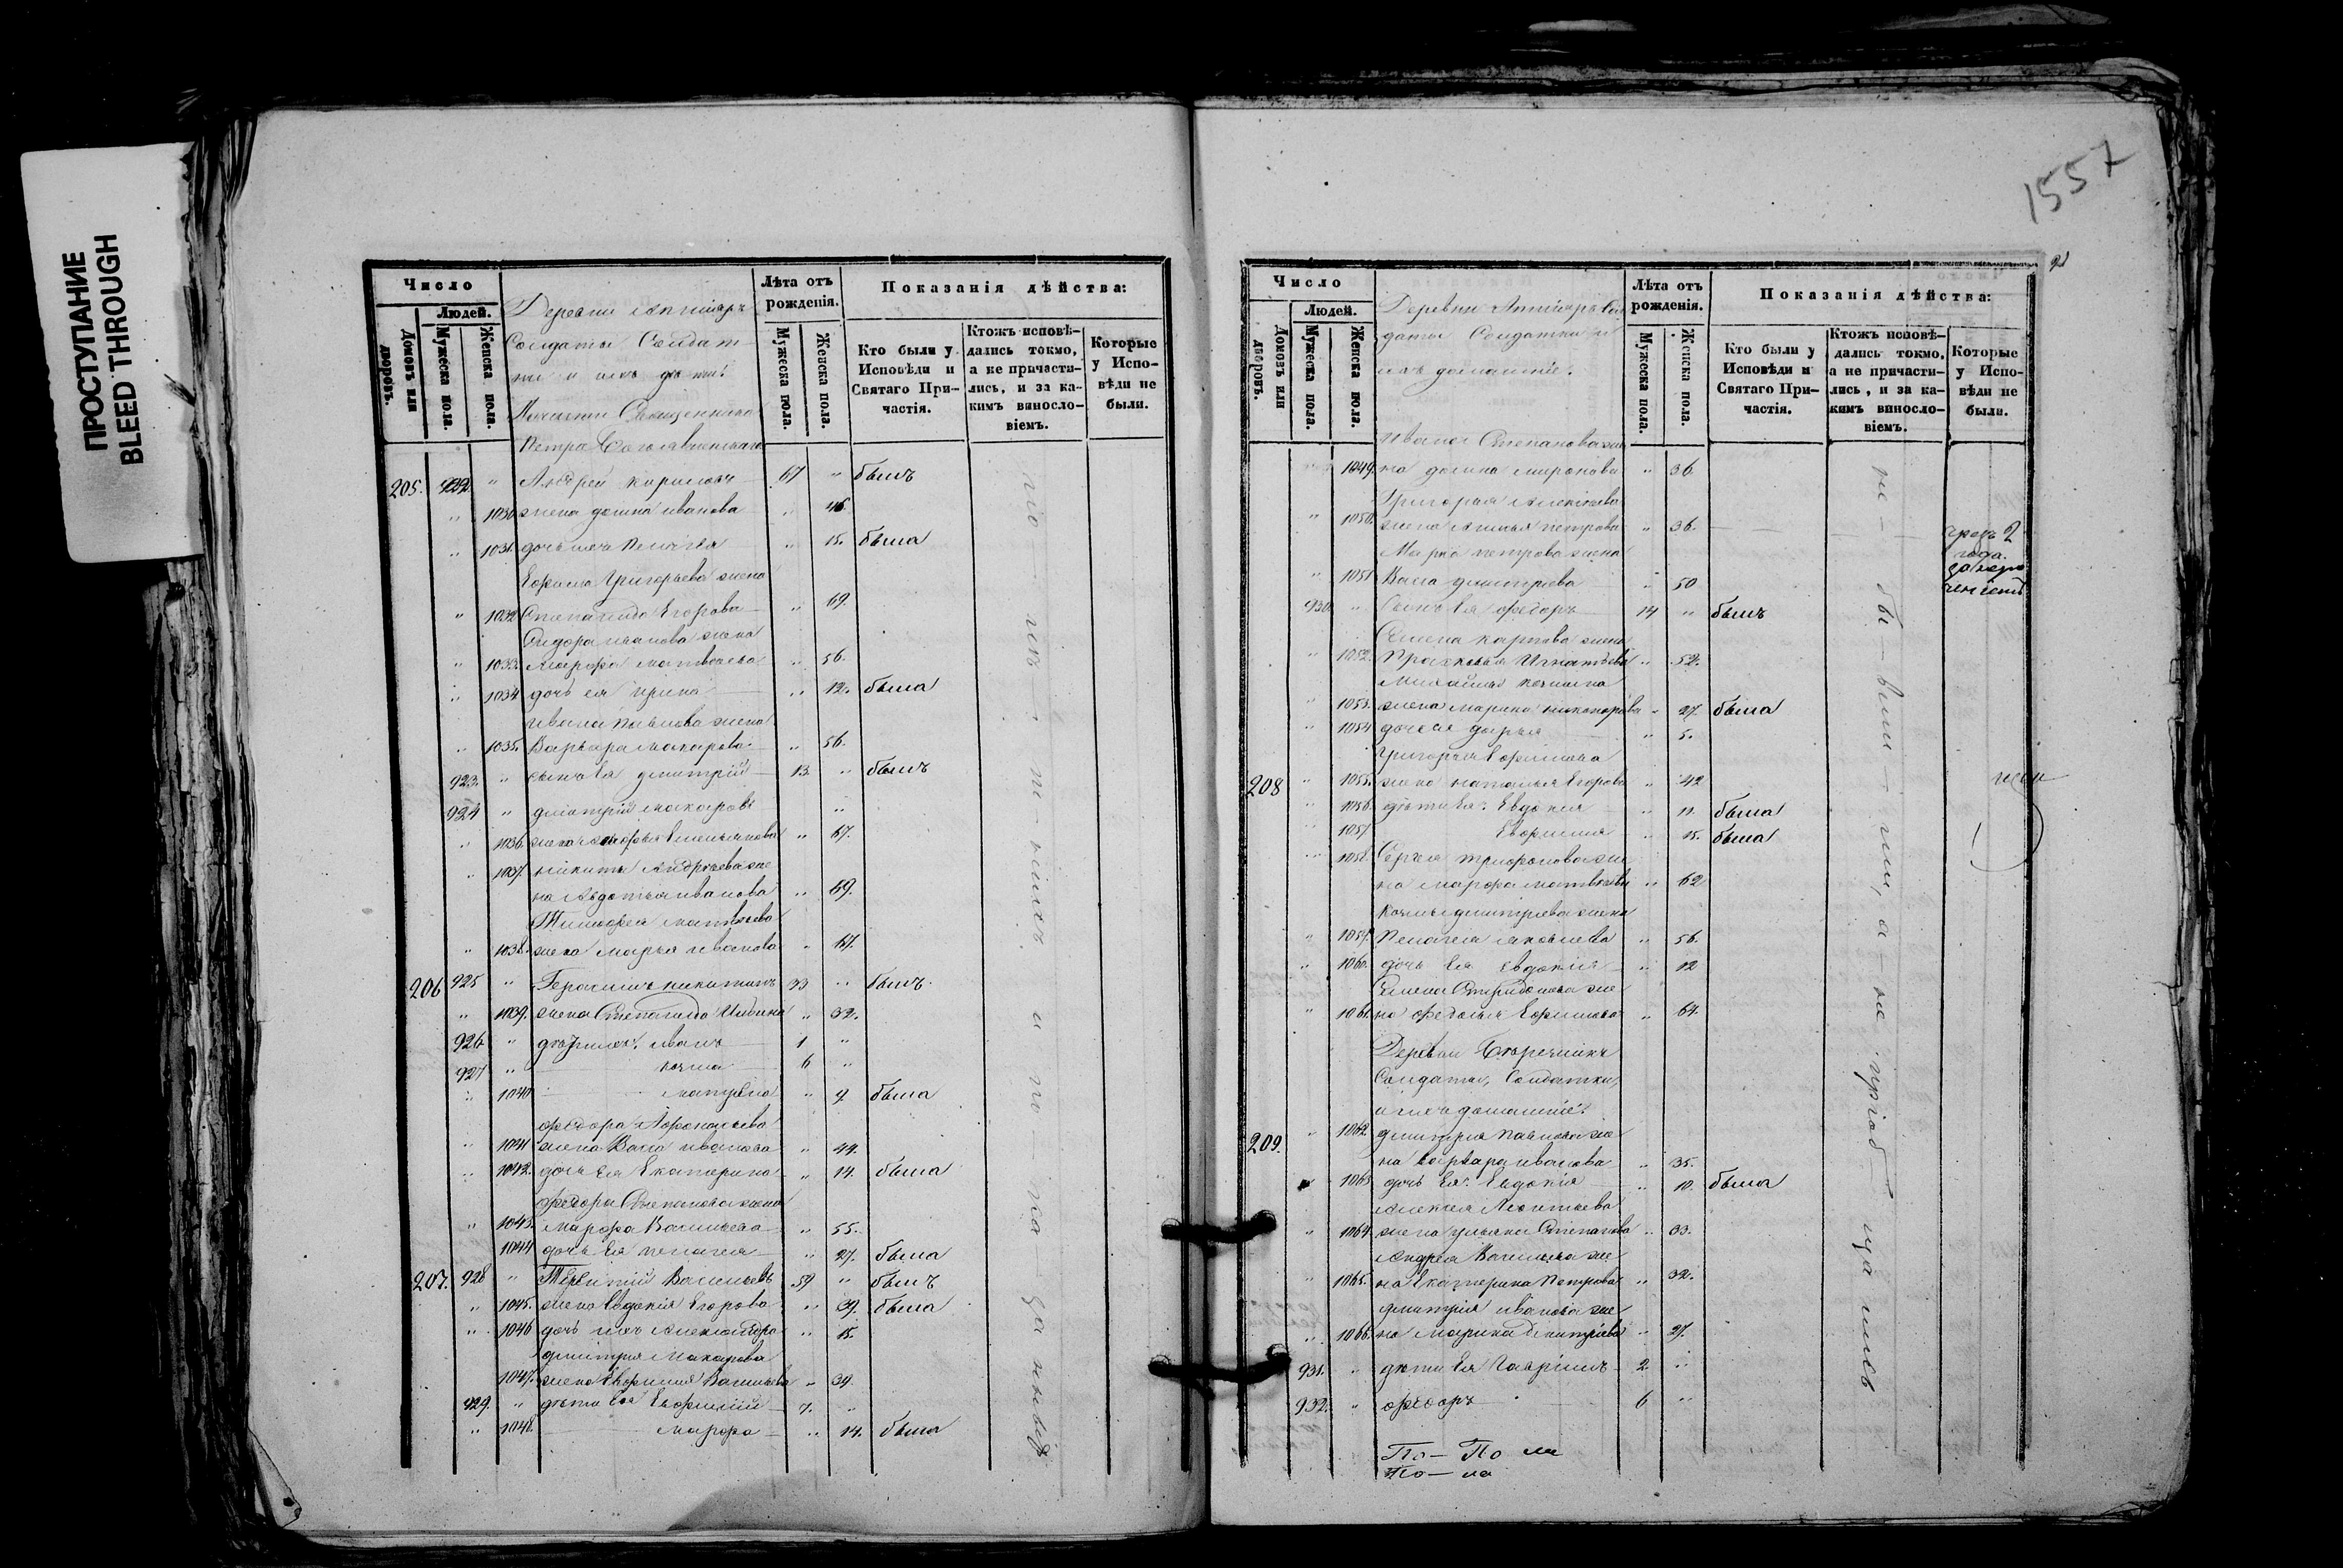 ПРОСТУПАНИЕ
BLEED THROUGH
Число
Людей.
Домовъ или дворовъ.
Мужеска пола.
Женска пола.
Деревни
Солдаты Солдат
ки и ихъ дѣти:
Священника
Петра
Лѣта отъ рожденія.
Мужеска пола.
Женска пола.
Показанія дѣйства:
Кто были у Исповѣди и Святаго Причастія.
Ктожъ исповѣдались токмо, а не причастились, и за какимъ винословіемъ.
Которые у Исповѣди не были.
205. 922. " Андрей Кириловъ 67 " былъ
" 1030. жена Домна Иванова " 46.
" 1031. дочь ихъ Пелагея " 15. была
Ефима Григорьева жена
" 1032. Степанида Егорова " 69.
Сидора Иванова жена
" 1033. Марфа Матвѣева " 56.
" 1034 дочь ея Ирина " 12. была
Ивана Павлова жена
" 1035. Варвара Макарова " 56.
923. " сынъ ея Дмитрій 13. " былъ
924 " Дмитрій Макаровъ "
" 1036. жена Емельянова " 67.
" 1037. Никиты Андреева же
на Авдотья Иванова " 69.
Тимофея Матвѣева
" 1038. жена Марья Иванова " 67.
206 925 " Герасимъ Никитинъ 33 " былъ.
" 1039. жена Степанида Ильина " 32.
926 " дѣти ихъ: Иванъ 1 "
927 " Козма 6 "
" 1040 Матрена " 9. была
Федора Афонасьева
" 1041 жена Васса Иванова " 44.
" 1042. дочь ея Екатерина " 14. была
Федора Степанова жена
" 1043. Марфа Васильева " 55.
1044 дочь ея Пелагея " 27. была
207. 928 " Терентій Васильевъ 59 " былъ
" 1045. жена Евдокія Егорова " 39. была
" 1046 дочь ихъ Александра " 15.
Дмитрія Макарова
1047. жена Евфимія Васильева " 39.
929. " дѣти ея Евфимій 7. "
" 1048. Марфа " 14. была
1557
Число
Людей.
Домовъ или дворовъ.
Мужеска пола.
Женска пола.
Деревни Сол
даты Солдатки и
ихъ домашніе.
Лѣта отъ рожденія.
Мужеска пола.
Женска пола.
Показанія дѣйства:
Кто были у Исповѣди и Святаго Причастія.
Ктожъ исповѣдались токмо, а не причастились, и за какимъ винословіемъ.
Которые у Исповѣди не были.
Ивана Степанова же
1049. на Домна Миронова " 36.
Григорья Алексѣева
" 1050. жена Аксинья Петрова " 36.
Марка Петрова жена
" 1051 Васса Дмитріева " 50
930. " Сынъ ея Федоръ 14 " былъ
Семена Карпова жена
" 1052. Прасковья Игнатьева " 52.
Михайлы Козмина
" 1053. жена Марина Никанорова " 27. была
" 1054 дочь ея Дарья " 5.
Григорья Ефимова
208 " 1055. жена Наталья Егорова " 42
" 1056. дѣти ея: Евдокія " 11. была
" 1057 Евфимія " 15. была
" 1058. Сергѣя Трифонова же
на Марфа Матвѣева " 62
Козмы Дмитріева жена
" 1059. Пелагея Яковлева " 56.
" 1060. дочь ея Евдокія " 12
Семена Спиридонова же
" 1061. на Федосья Ефимова " 64.
Деревни
Солдаты, Солдатки,
и ихъ домашніе:
209. " 1062. Дмитрія Павлова же
на Варвара Иванова " 35.
1063 дочь ея: Евдокія " 10. была
Алексѣя Леонтьева
" 1064. жена Ульяна Степанова " 33.
Андрея Васильева же
" 1065. на Екатерина Петрова " 32.
Дмитрія Иванова же
" 1066. на Марина Никитина " 27.
931. " дѣти ея Гавріилъ 2. "
932. " Федоръ 6 "